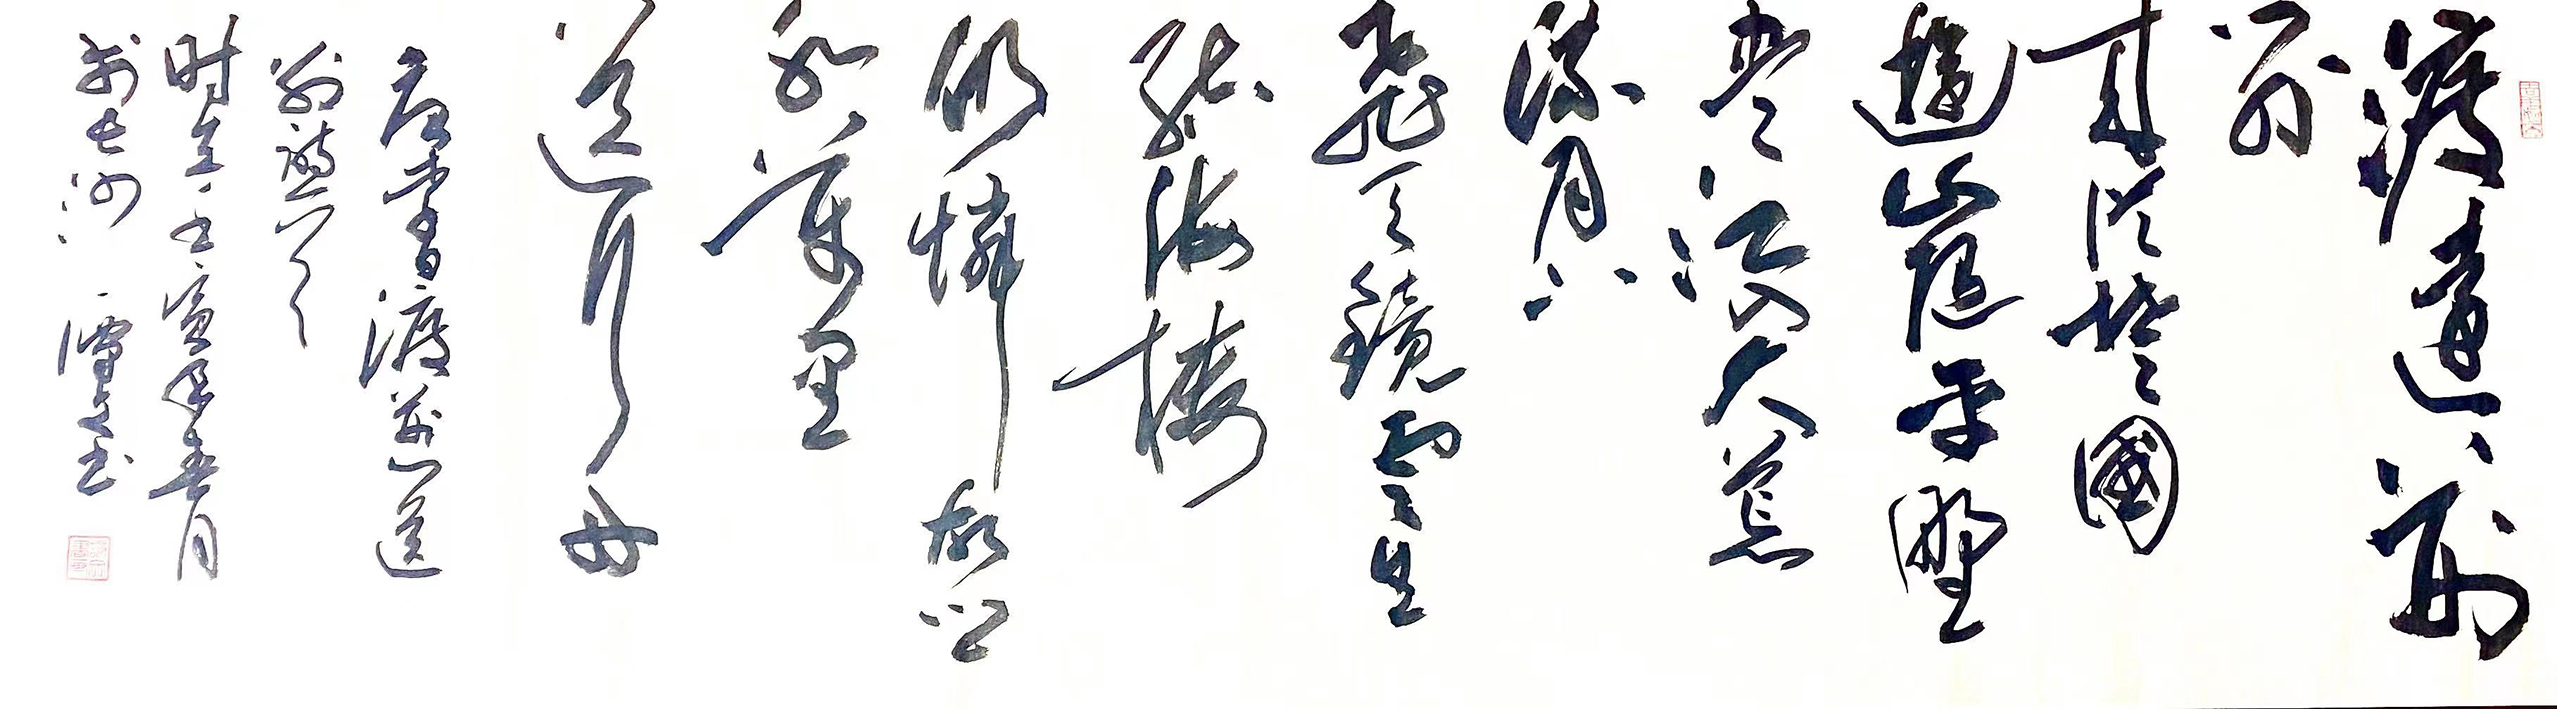 渡遠荊
门外
来從楚國
遊山隨平野
盡江入大荒
流月下
飛天鏡雲生
結海樓
仍憐故乡
水萬里
送行舟
唐李白渡荊门送
别詩一首
时在壬寅年春月
於长沙